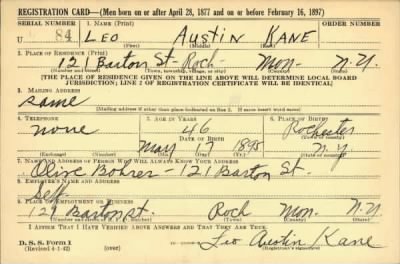 REGISTRATION CARD—(Men born on or after April 28, 1877 and on or before February 16, 1897)
SERIAL NUMBER 1. NAME (Print) ORDER NUMBER
U 84 LEO AUSTIN KANE
(First) (Middle) (Last)
2. PLACE OF RESIDENCE (Print)
121 Barton St- Roch- Mon- N.Y.
(Number and street) (Town, township, village, or city) (County) (State)
[THE PLACE OF RESIDENCE GIVEN ON THE LINE ABOVE WILL DETERMINE LOCAL BOARD
JURISDICTION; LINE 2 OF REGISTRATION CERTIFICATE WILL BE IDENTICAL]
3. MAILING ADDRESS
same
[Mailing address if other than place indicated on line 2. If same insert word same]
4. TELEPHONE 5. AGE IN YEARS 6. PLACE OF BIRTH
none 46 Rochester
DATE OF BIRTH
May 17 1895 N.Y.
(Mo.) (Day) (Yr.)
7. NAME AND ADDRESS OF PERSON WHO WILL ALWAYS KNOW YOUR ADDRESS
Olive Bohrer - 121 Barton St.
8. EMPLOYER'S NAME AND ADDRESS
Self
9. PLACE OF EMPLOYMENT OR BUSINESS
121 Barton St. Roch Mon. N.Y.
(Number and street or R. F. D. number) (Town) (County) (State)
I AFFIRM THAT I HAVE VERIFIED ABOVE ANSWERS AND THAT THEY ARE TRUE.
D. S. S. Form 1
(Revised 4-1-42) (over) Leo Austin Kane
(Registrant's signature)